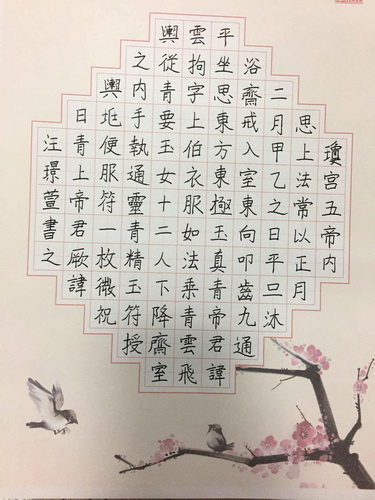 瓊宮五帝內
思上法常以正月
二月甲乙之日平旦沐
浴齋戒入室東向叩齒九通
平坐思東方東極玉真青帝君諱
雲拘字上伯衣服如法乘青雲飛
輿從青要玉女十二人下降齋室
之內手執通靈青精玉符授
輿便服符一枚微祝
日青上帝君厥諱
汪璟萱書之